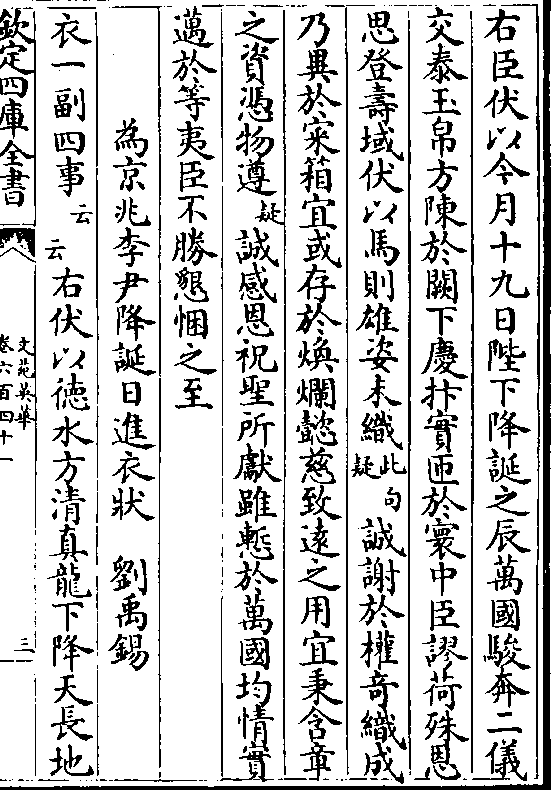 右臣伏以今月十九日陛下降誕之辰萬國駿奔二儀
交泰玉帛方陳於闕下慶抃實匝於寰中臣謬荷殊恩
思登壽域伏以馬則雄姿未織此句疑誠謝於權奇織成
乃異於寀箱宜或存於煥爛懿慈致逺之用宜秉含章
之資憑物遵疑誠感恩祝聖所獻雖慙於萬國均情實
邁於等夷臣不勝懇悃之至
為京兆李尹降誕日進衣狀　劉禹錫
衣一副四事云云右伏以德水方清真龍下降天長地
欽定四庫全書
文苑英華
卷六百四十一
三